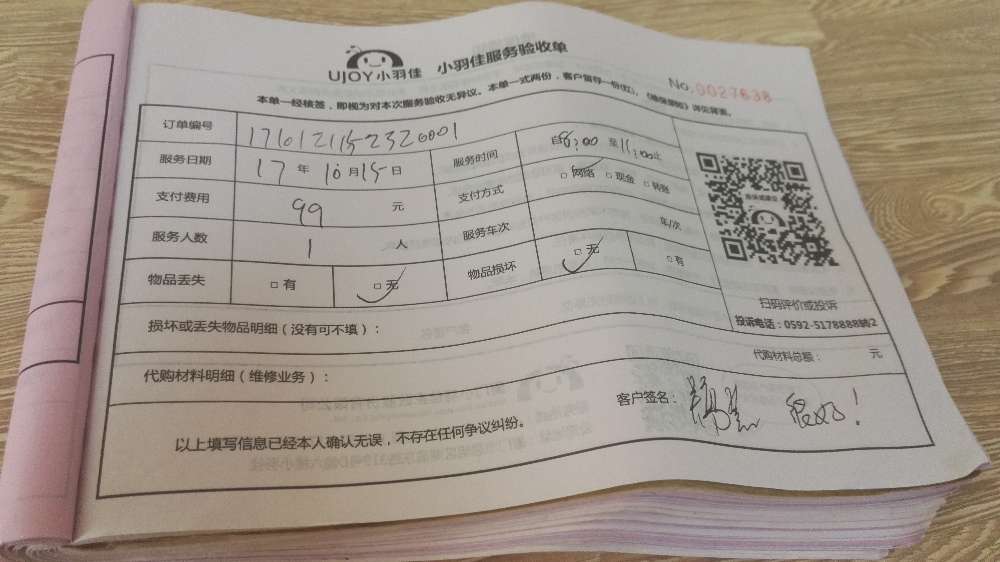 UJOY小羽佳 小羽佳服务验收单
No.0027638
本单一经核签，即视为对本次服务验收无异议。本单一式两份，客户留存一份(红)，
订单编号 17101211523220001
服务日期 17年10月15日 服务时间 自8:00至11:00止
支付费用 99 元 支付方式 □网络 □现金 □转账
服务人数 1 人 服务车次 车/次
物品丢失 □有 □无 物品损坏 □无 □有
扫码评价或投诉
投诉电话：0592-5178888转2
损坏或丢失物品明细（没有可不填）：
代购材料明细（维修业务）： 代购材料总额： 元
以上填写信息已经本人确认无误，不存在任何争议纠纷。
客户签名： 很好！